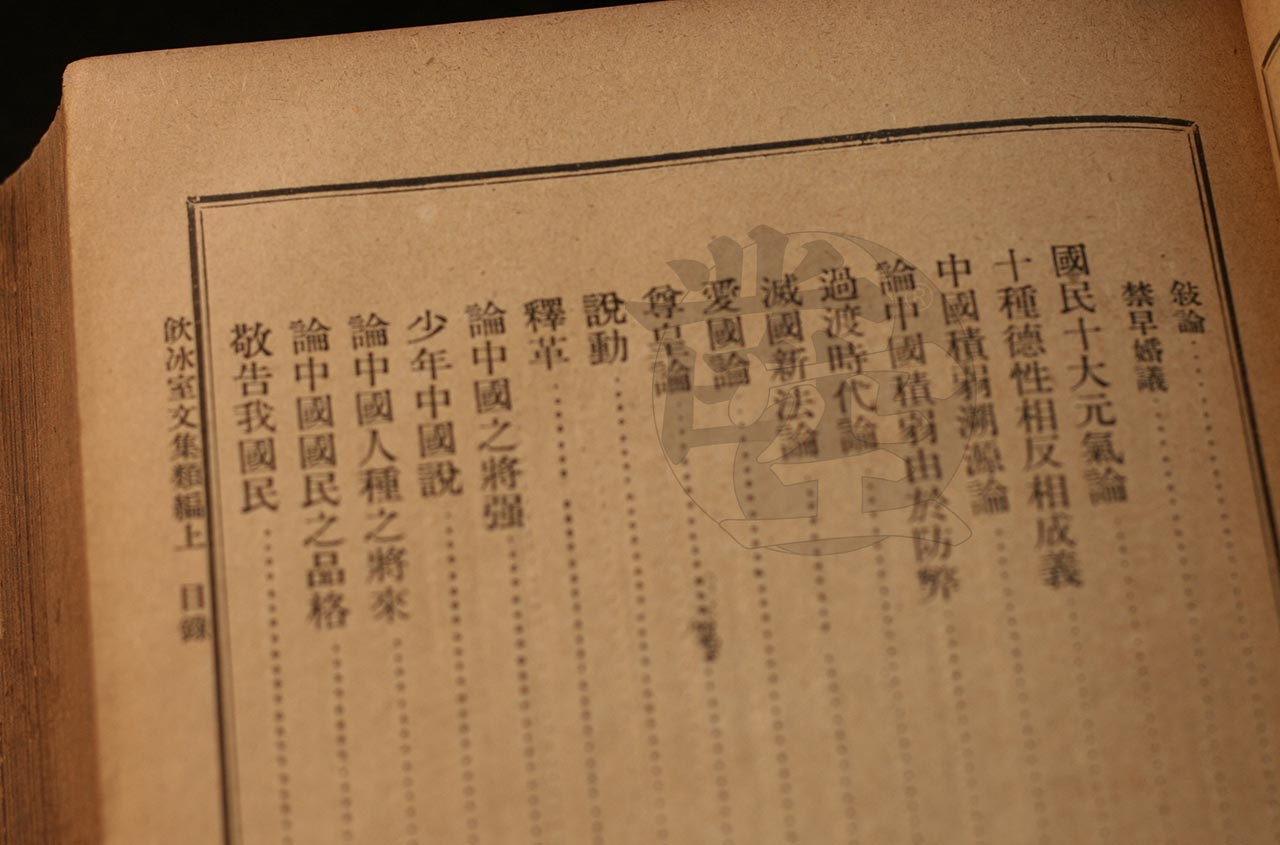 敍論
禁早婚議
國民十大元氣論
十種德性相反相成義
中國積弱溯源論
論中國積弱由於防弊
過渡時代論
滅國新法論
愛國論
尊皇論
說動
釋革
論中國之將强
少年中國說
論中國人種之將來
論中國國民之品格
敬告我國民
飮冰室文集類編上 目錄